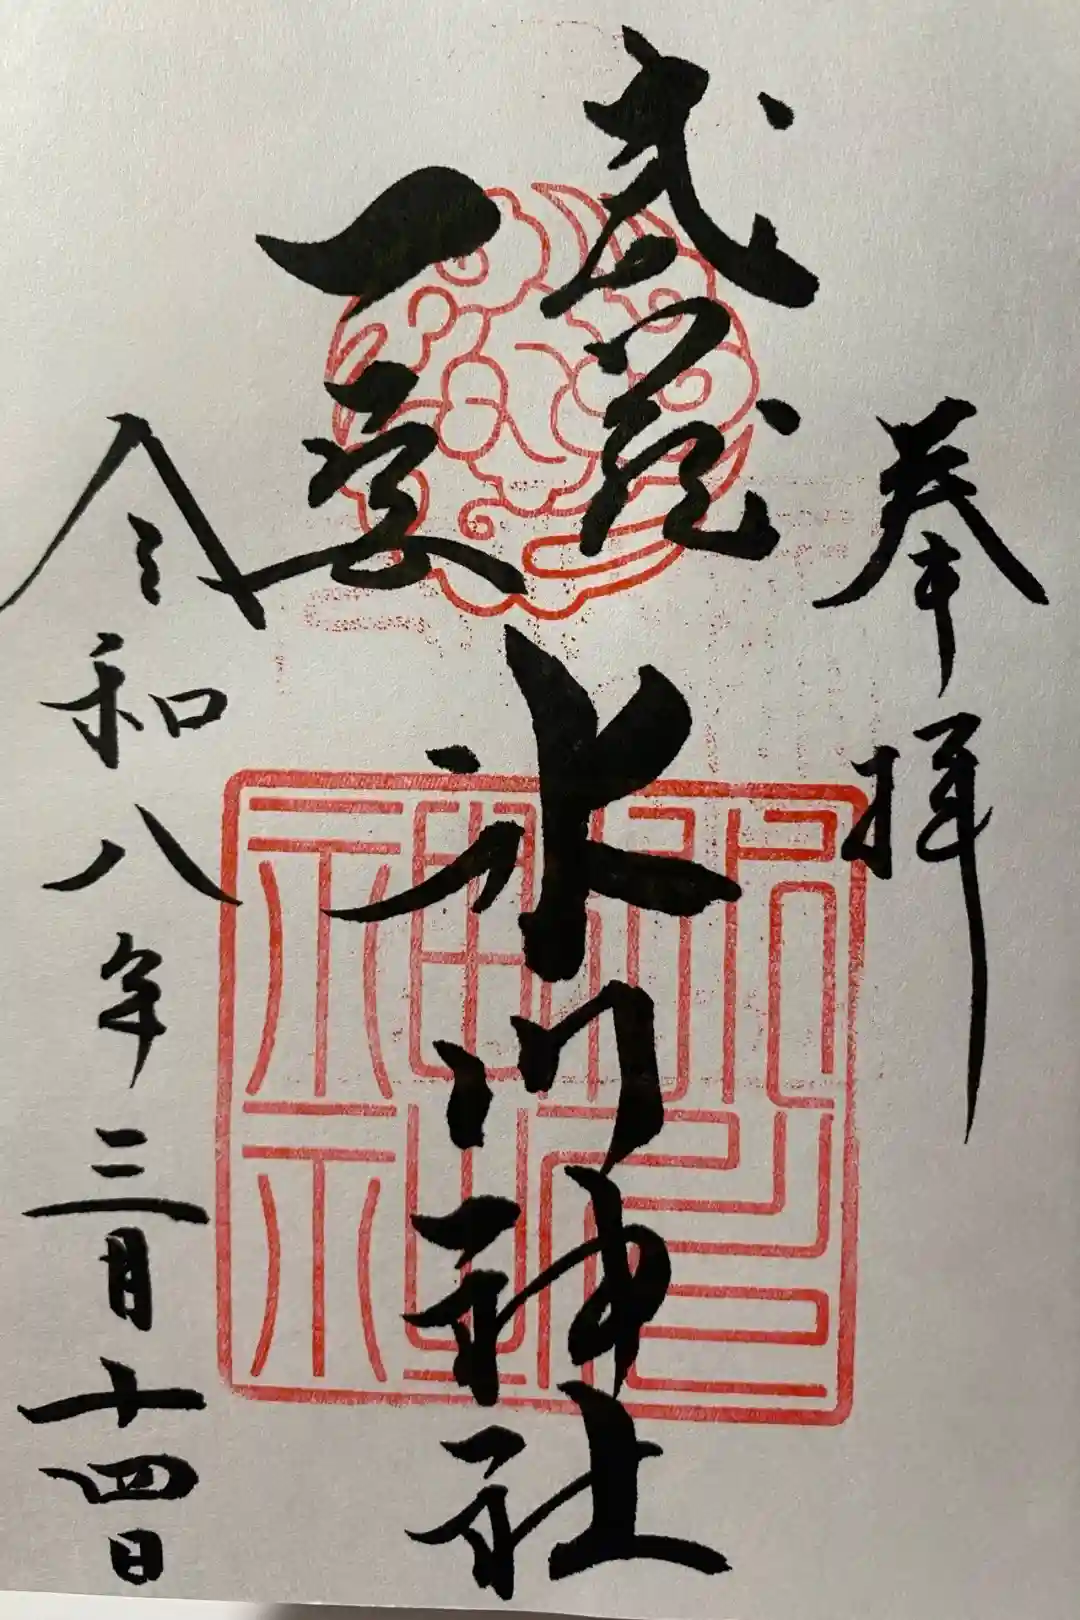 奉拝
武蔵
一宮
氷川神社
令和八年三月十四日